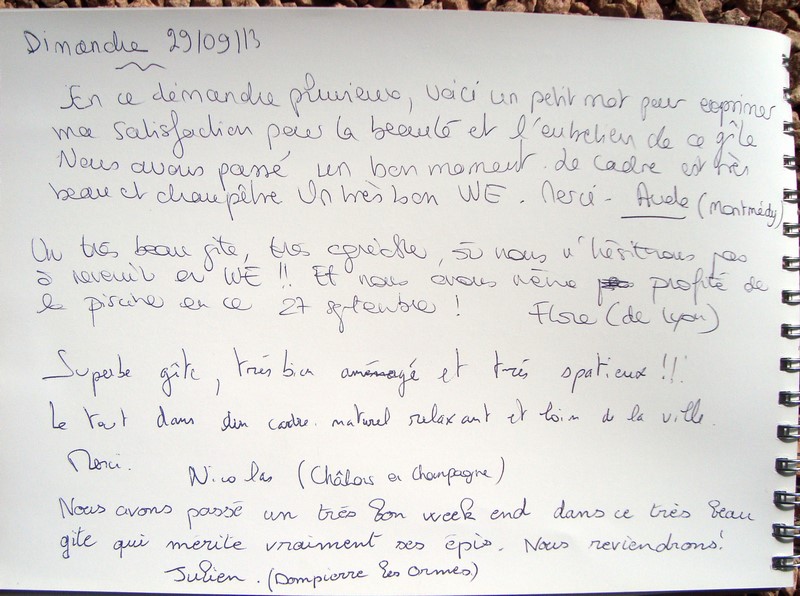 Dimanche 29/09/13
En ce démanche pluvieux, voici un petit mot pour exprimer
ma satisfaction pour la beauté et l'entretien de ce gîte
Nous avons passé un bon moment. de cadre est très
beau et champêtre Un très bon WE. Merci - Aude (Montmédy)
Un très beau gîte, très agréable, où nous n'hésitrons pas
à revenir en WE !! Et nous avons même profité de
la piscine en ce 27 septembre !
Flore (de Lyon)
Superbe gîte, très bien aménagé et très spatieux !!!
Le tout dans un cadre naturel relaxant et loin de la ville.
Merci.
Nicolas (Châlons en champagne)
Nous avons passé un très bon week end dans ce très beau
gite qui mérite vraiment ses épis. Nous reviendrons!
Julien. (Dompierre les Ormes)